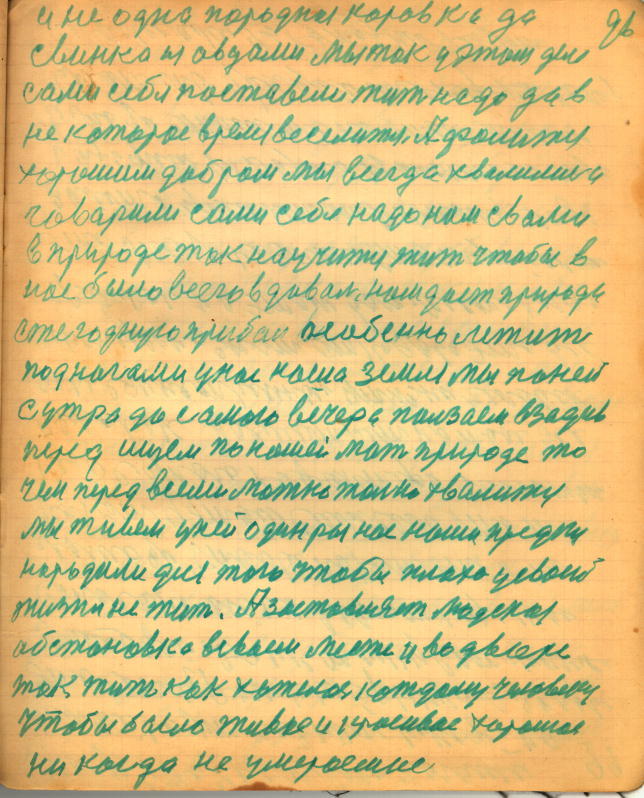 96
и не одна породная коровка да
свинка и овцами мы так у этом деле
сами себя поставели жить надо да в
не которое время веселится. А
хорошим добром мы всегда хвалимся
говарили сами себе надо нам с вами
в природе так научится жить чтобы в
нас было всего вдоваль нам даст природа
ежегодную прибыл особенно лежит
подногами у нас наша земля мы поней
с утра до самого вечера ползаем взадив
перед ищем по нашей мат природе то
чем перед всеми можно толко хвалится
мы живем у ней один раз нас наши предки
народили для того чтобы плохо у своей
жизни не жит. А заставляет людская
обстановка в своем месте и во дворе
так жить как хотелось каждому человеку
чтобы было живое и красивае хорошае
ни когда не умераемае